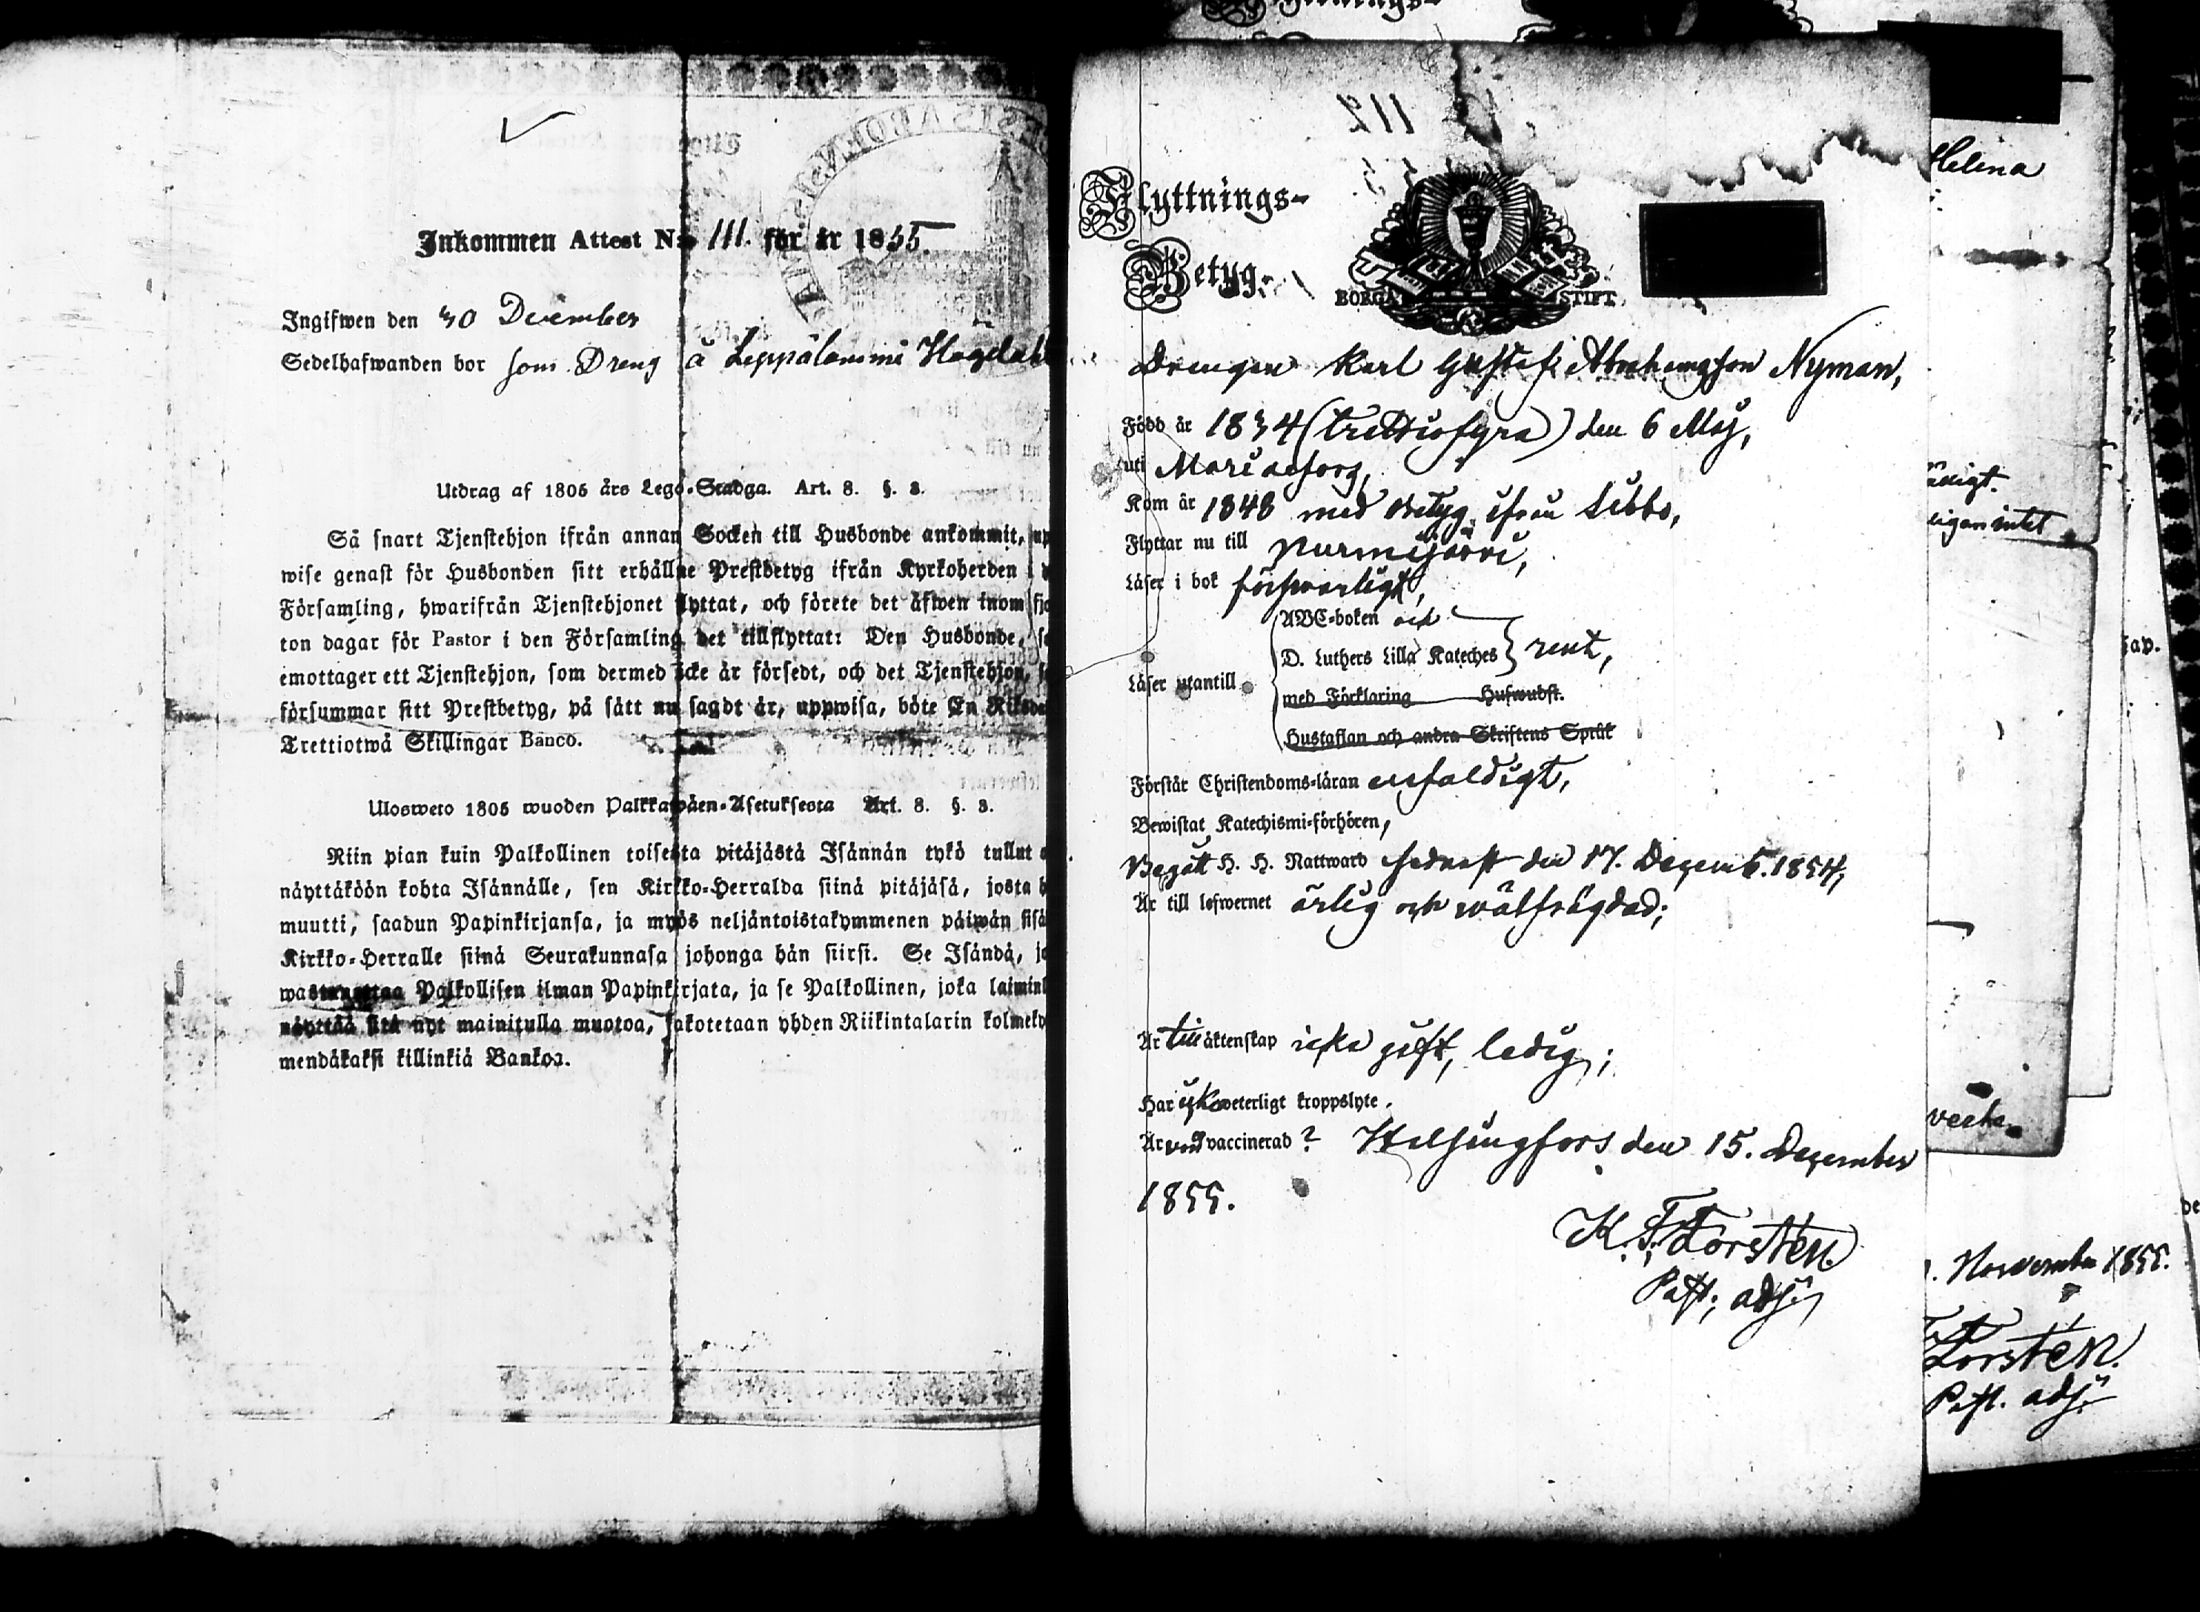 Inkommen Attest No 111. för år 1855.
Ingifwen den 30 December
Sedelhafwanden bor som Dreng å Leppälammi
Utdrag af 1805 års Lego-Stadga. Art. 8. §. 3.
Så snart Tjenstehjon ifrån annan Socken till Husbonde ankommit, up
wise genast för Husbonden sitt erhållne Prestbetyg ifrån Kyrkoherden i
Församling, hwarifrån Tjenstehjonet flyttat, och förete det äfwen inom fjo
ton dagar för Pastor i den Församling det tillflyttat: Den Husbonde, s
emottager ett Tjenstehjon, som dermed icke är försedt, och det Tjenstehjon, s
försummar sitt Prestbetyg, på sätt nu sagdt är, uppwisa, böte En Riksda
Trettiotwå Skillingar Banco.
Ulosweto 1805 wuoden Palkkawäen-Asetuksesta Art. 8. §. 3.
Niin pian kuin Palkollinen toisesta pitäjästä Isännän tykö tullut o
näyttäköön kohta Isännälle, sen Kirkko-Herralda siinä pitäjäsä, josta h
muutti, saadun Papinkirjansa, ja myös neljäntoistakymmenen päiwän sisä
Kirkko-Herralle siinä Seurakunnasa johonga hän siirsi. Se Isändä, jo
wastanottaa Palkollisen ilman Papinkirjata, ja se Palkollinen, joka laiminl
näyttää sitä nyt mainitulla muotoa, sakotetaan yhden Riikintalarin kolmeky
mendäkaksi killinkiä Bankoa.
112
Flyttnings-
Betyg.
BORGÅ STIFT
Drengen Karl Gustaf Abrahamsson Nyman,
Född år 1834 (trettiofyra) den 6 Maj,
uti
Kom år 1848 med betyg ifrån Sibbo,
Flyttar nu till Nurmijärvi,
Läser i bok försvarligt,
Läser utantill
ABC-boken och
D. Luthers Lilla Kateches
rent,
med Förklaring Huswudst.
Hustaflan och andra Skriftens Språk
Förstår Christendoms-läran enfaldigt,
Bewistat Katechismi-förhören,
Begått H. H. Nattward sednast den 17. Decemb. 1854,
Är till lefwernet ärlig och wälfrägdad;
Är till äktenskap icke gift, ledig;
Har icke weterligt kroppslyte.
Är vaccinerad? Helsingfors den 15. December
1855.
K. F. Forstén.
Past. adj.
Helina
ädigt.
eigom intet
November 1855.
Forstén.
Past. adj.